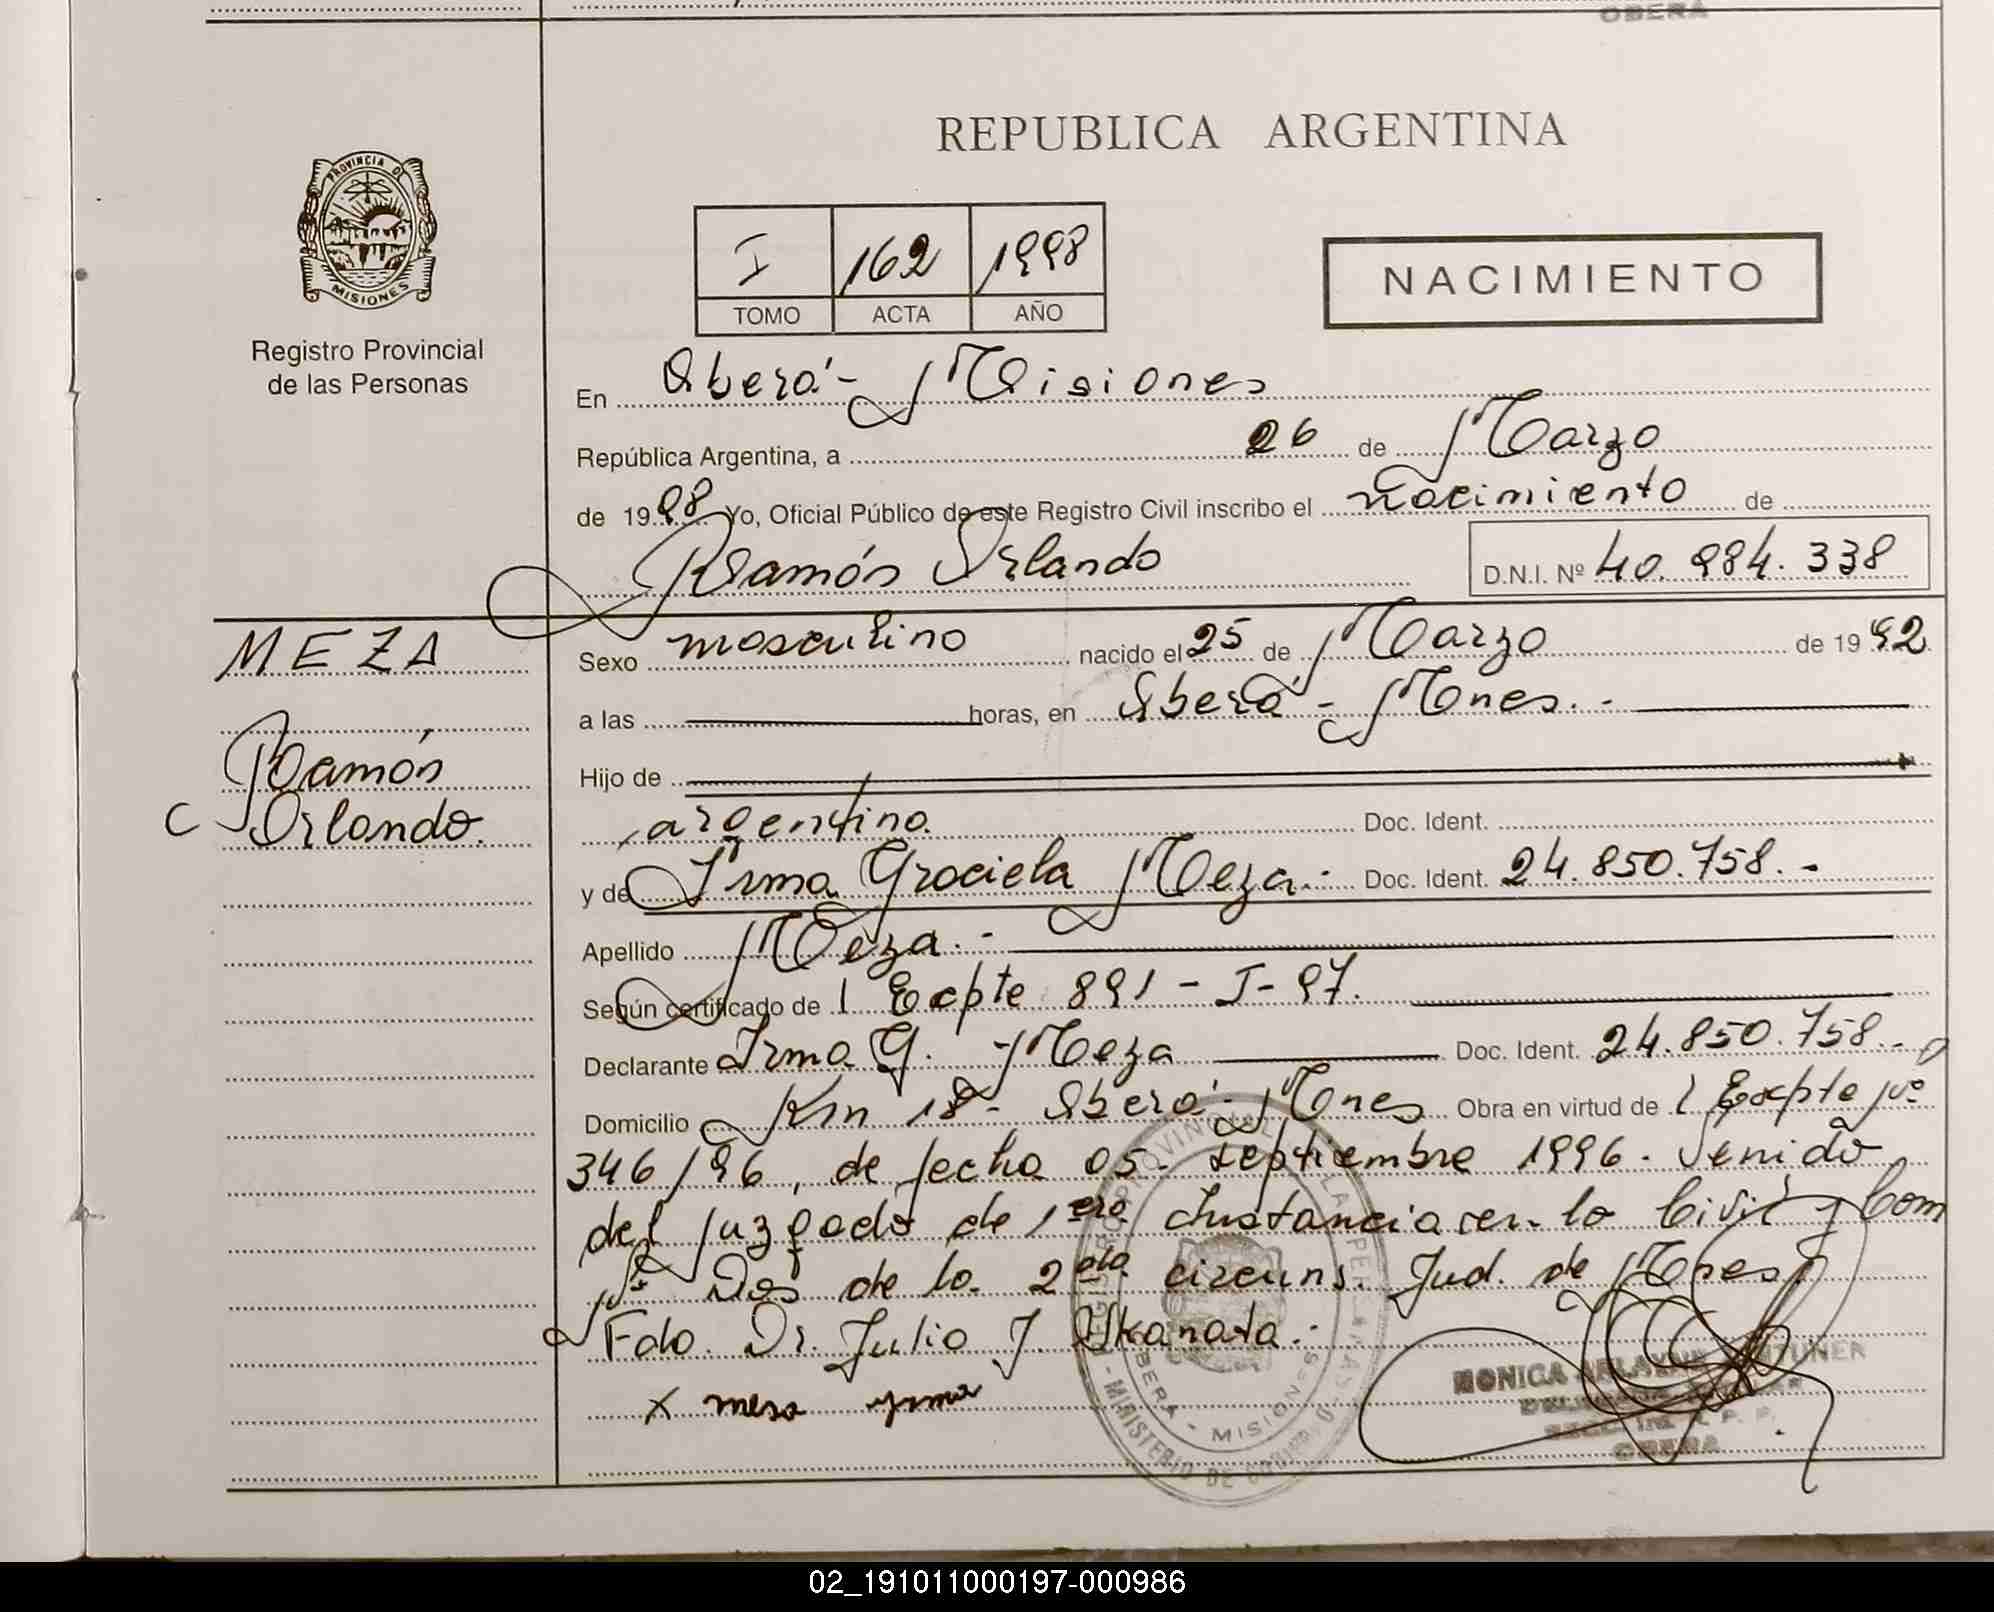 OBERA
REPUBLICA ARGENTINA
PROVINCIA DE
MISIONES
Registro Provincial
de las Personas
I 162 1998
TOMO ACTA AÑO
NACIMIENTO
En Oberá - Misiones
República Argentina, a 26 de Marzo
de 1998 Yo, Oficial Público de este Registro Civil inscribo el nacimiento de
Ramón Orlando D.N.I. Nº 40.984.338
MEZA
Ramón
Orlando.
Sexo masculino nacido el 25 de Marzo de 1992
a las horas, en Oberá - Mnes. -
Hijo de
argentino. Doc. Ident.
y de Irma Graciela Meza.- Doc. Ident. 24.850.758.-
Apellido Meza.-
Según certificado de l Expte 891 - I - 97.
Declarante Irma G. Meza Doc. Ident. 24.850.758.-
Domicilio Km 18 - Oberá - Mnes Obra en virtud de l Expte Nº
346/96, de fecha 05 septiembre 1996. Venido
del juzgado de 1era Instancia en lo Civil y Com
Nº Dos de la 2da circuns. Jud. de Mnes.
Fdo. Dr. Julio J.
x mesa yrma
REGISTRO PROVINCIAL DE LAS PERSONAS - MINISTERIO DE GOBIERNO
OBERA - MISIONES
MONICA
OBERA
02_191011000197-000986